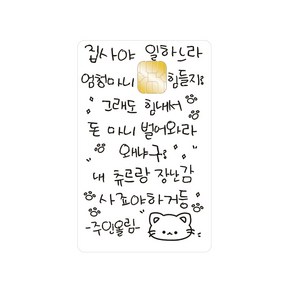 집사야 일하느라
엄청마니 힘들지?
그래도 힘내서
돈 마니 벌어와라
왜냐구?
내 츄르랑 장난감
사죠야하거등
-주인올림-